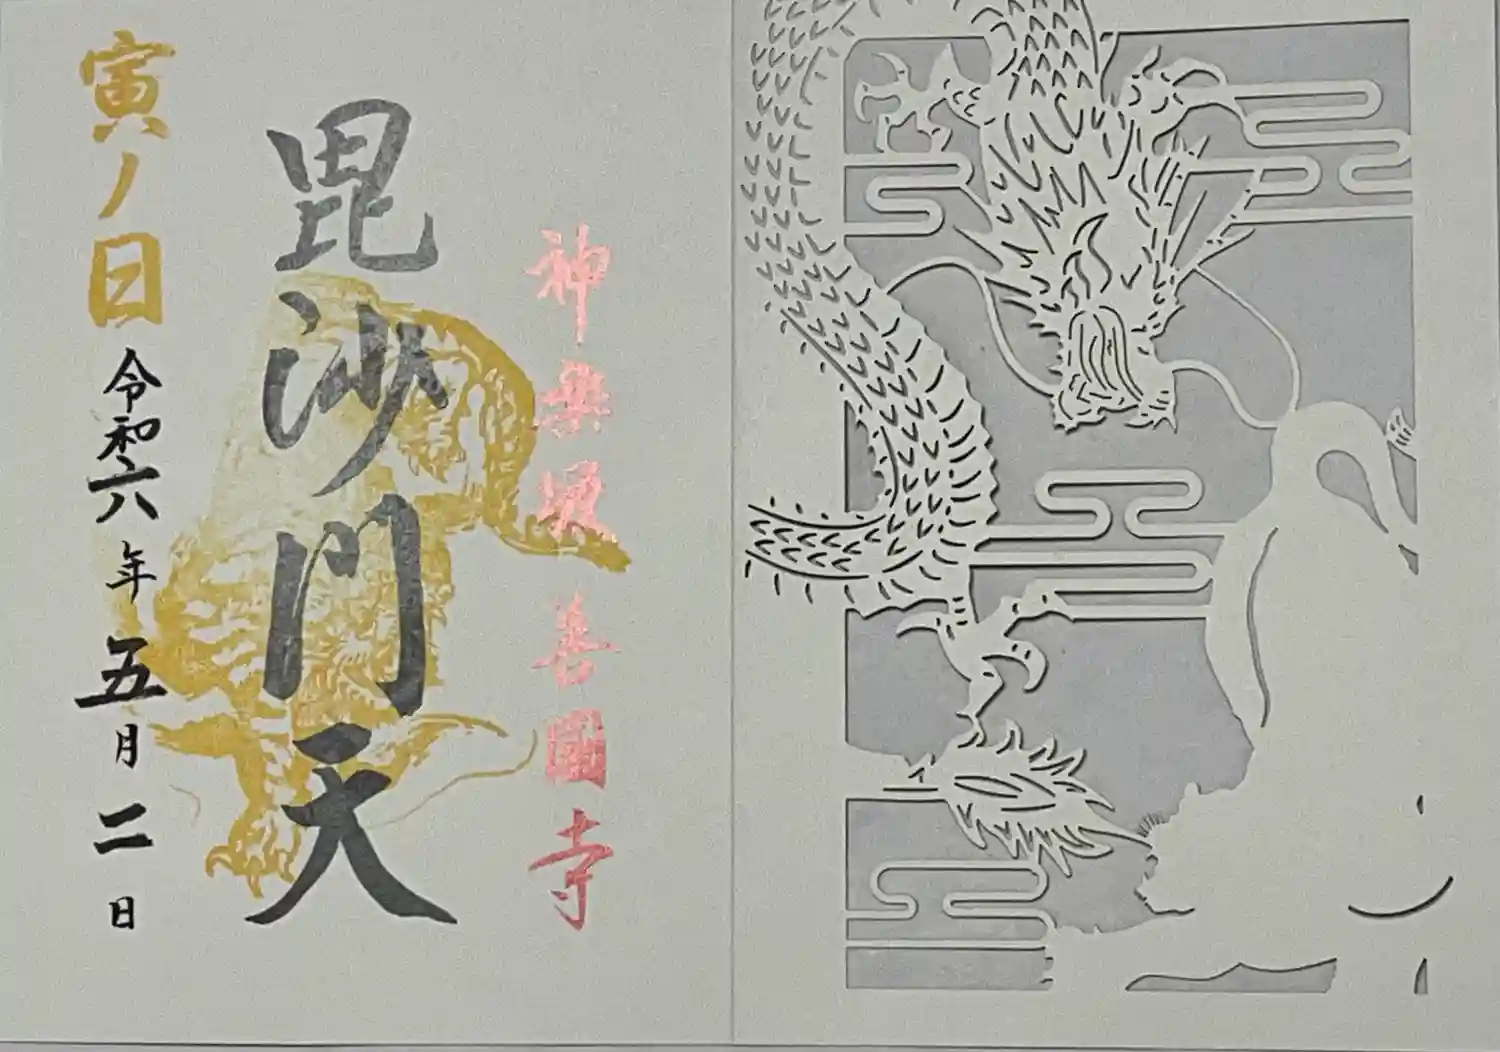 神楽坂 善國寺
毘沙門天
寅ノ日
令和六年 五月二日